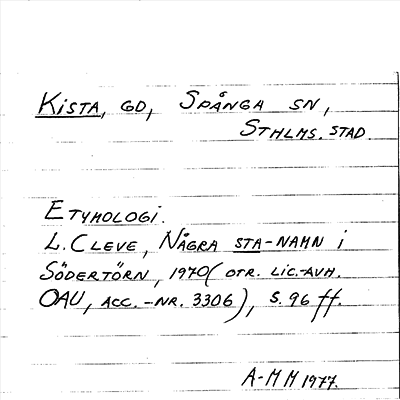 Kista, gd, Spånga sn,
Sthlms. stad.
Etymologi.
L. Cleve, Några sta-namn i
Södertörn, 1970 (otr. lic.-avh.
OAU, acc.-nr. 3306), s. 96 ff.
A-MM 1977.